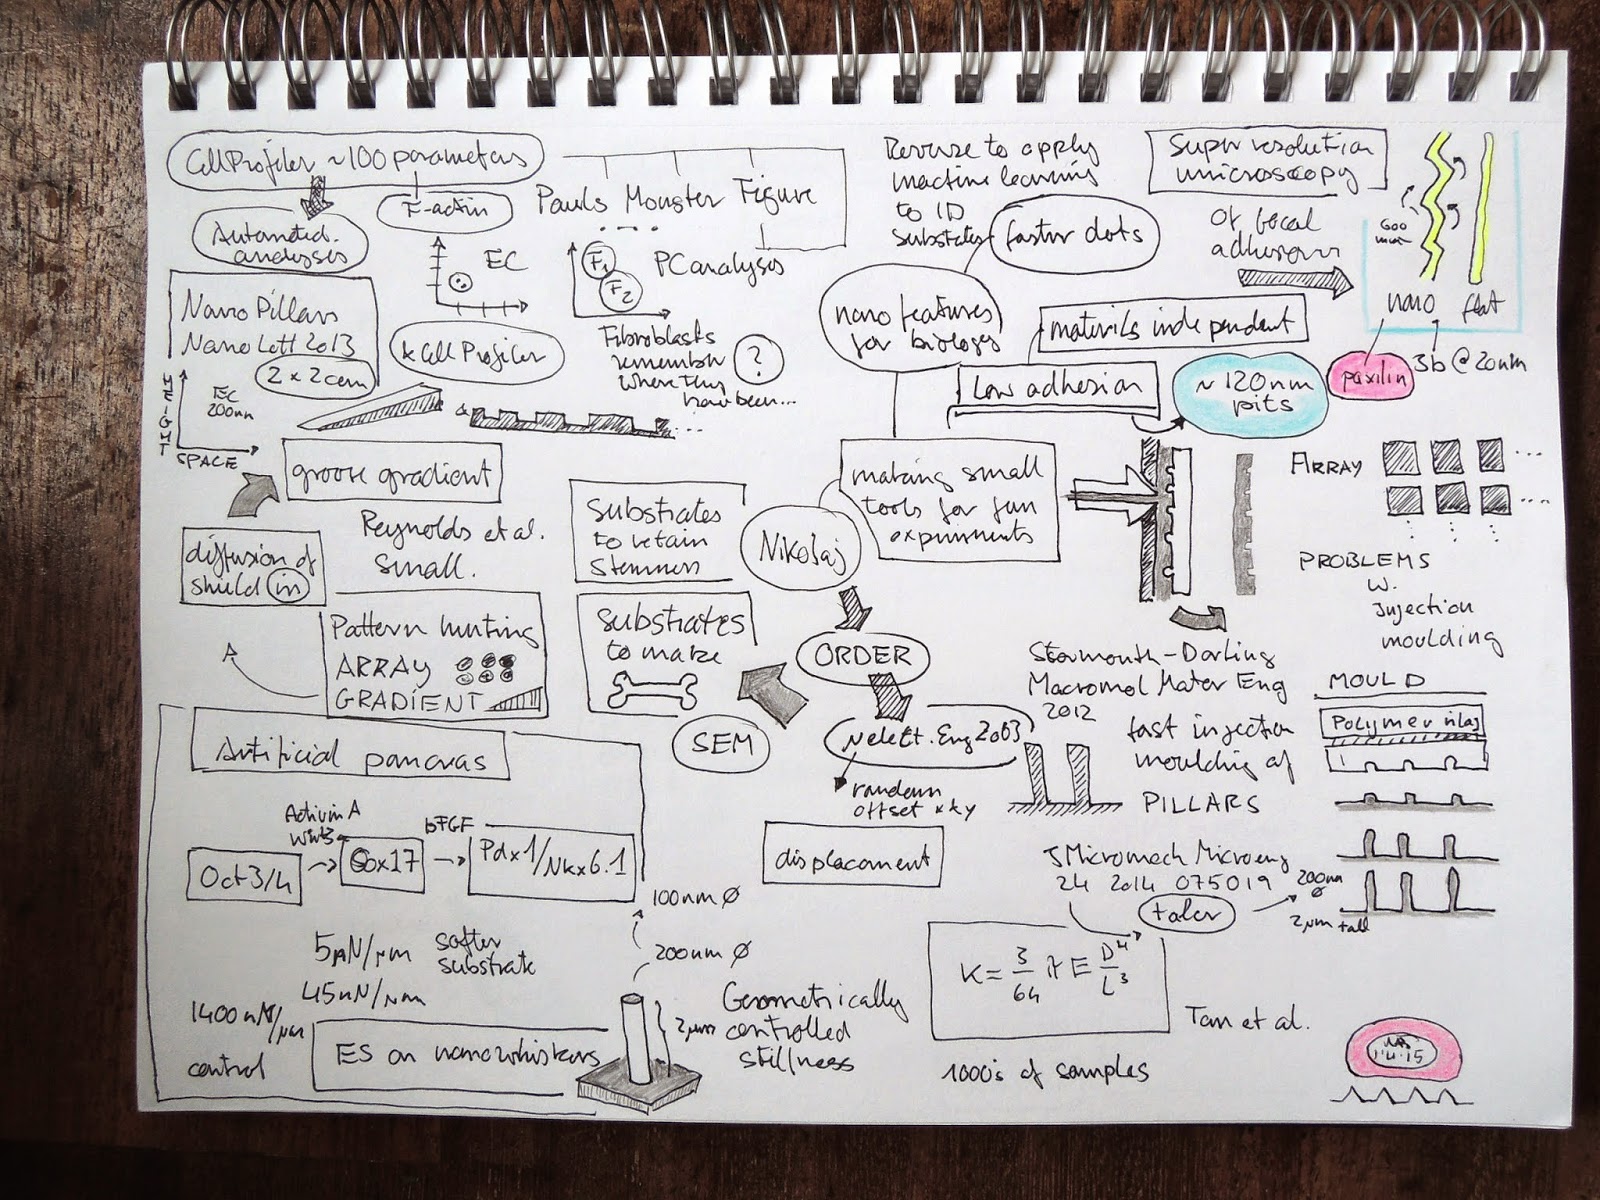 CellProfiler ~100 parameters
F-actin
Automated
analyses
Pauls Monster Figure
EC
F1
F2
PC analyses
Fibroblasts
remember
where they
have been...
?
Nano Pillars
Nano Lett 2013
2 x 2cm
& CellProfiler
HEIGHT
SPACE
EC
200nm
&
groove gradient
Reynolds et al.
Small.
diffusion of
shield in
Pattern hunting
ARRAY
GRADIENT
Reverse to apply
machine learning
to ID
substrates
faster dots
nano features
for biology
materials independent
Low adhesion
~120nm
pits
Super resolution
microscopy
of focal
adhesions
600
nano flat
paxilin
3b @ 20nm
making small
tools for fun
experiments
Nikolaj
Substrates
to retain
stemness
Substrates
to make
ORDER
SEM
Nelect. Eng 2003
random
offset xy
displacement
ARRAY
PROBLEMS
w.
Injection
moulding
Stormouth-Darling
Macromol Mater Eng
2012
fast injection
moulding of
PILLARS
MOULD
Polymer inlay
J Micromech Microeng
24 2014 075019
taler
200nm
Ø
2µm tall
K = 3/64 π E D⁴/L³
Tan et al.
1000's of samples
Artificial pancreas
Activin A
Wnt3
bFGF
Oct3/4
Sox17
Pdx1/Nkx6.1
100nm Ø
200nm Ø
2µm
5nN/µm
softer
substrate
45nN/µm
1400nN/µm
control
ES on nanowhiskers
Geometrically
controlled
stillness
1.4.15